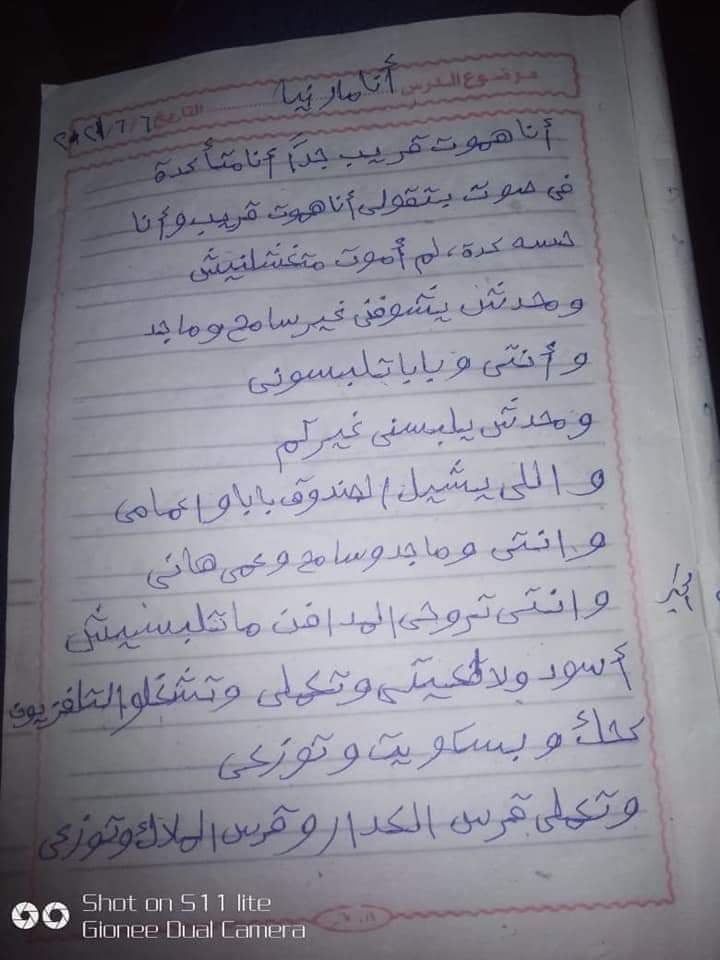 موضوع الدرس أنا مارينا التاريخ ٢٠٢١/٦/٦
أنا هموت قريب جداً أنا متأكدة
فى صوت بتقولى أنا هموت قريب وأنا
حسه كدة، لم أموت متغسلنيش
ومحدش يشوفنى غير سامح وماجد
وأنتى وبابا تلبسونى
ومحدش يلبسنى غيركم
واللى يشيل الصندوق بابا واعمامى
وانتى وماجد وسامح وعمى هانى
وانتى تروحى المدافن ماتلبسيش
أسود ولا تعيتى وتعملى وتشغلو التلفزيون
كحك وبسكويت وتوزعى
وتعملى قرس الكدار وقرس الملاك وتوزعى
Shot on S11 lite
Gionee Dual Camera